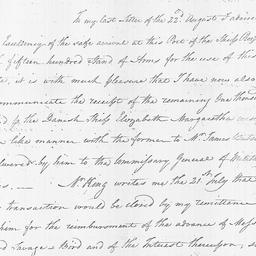 In my last letter of the 22d August I advised
Excellency of the safe arrival at this Port of the Ship
fifteen hundred Stand of Arms for the use of this
it is with much pleasure that I have now also
communicate the receipt of the remaining One thous
the Danish Ship Elizabeth Margaretha
like manner with the former to Mr. James
livered by him to the Commissary General of
Mr. King writes me the 21st July that
transaction would be closed by my remittance
him for the reimbursement of the advance of Mess
Savage & Bird and of the Interest thereupon,